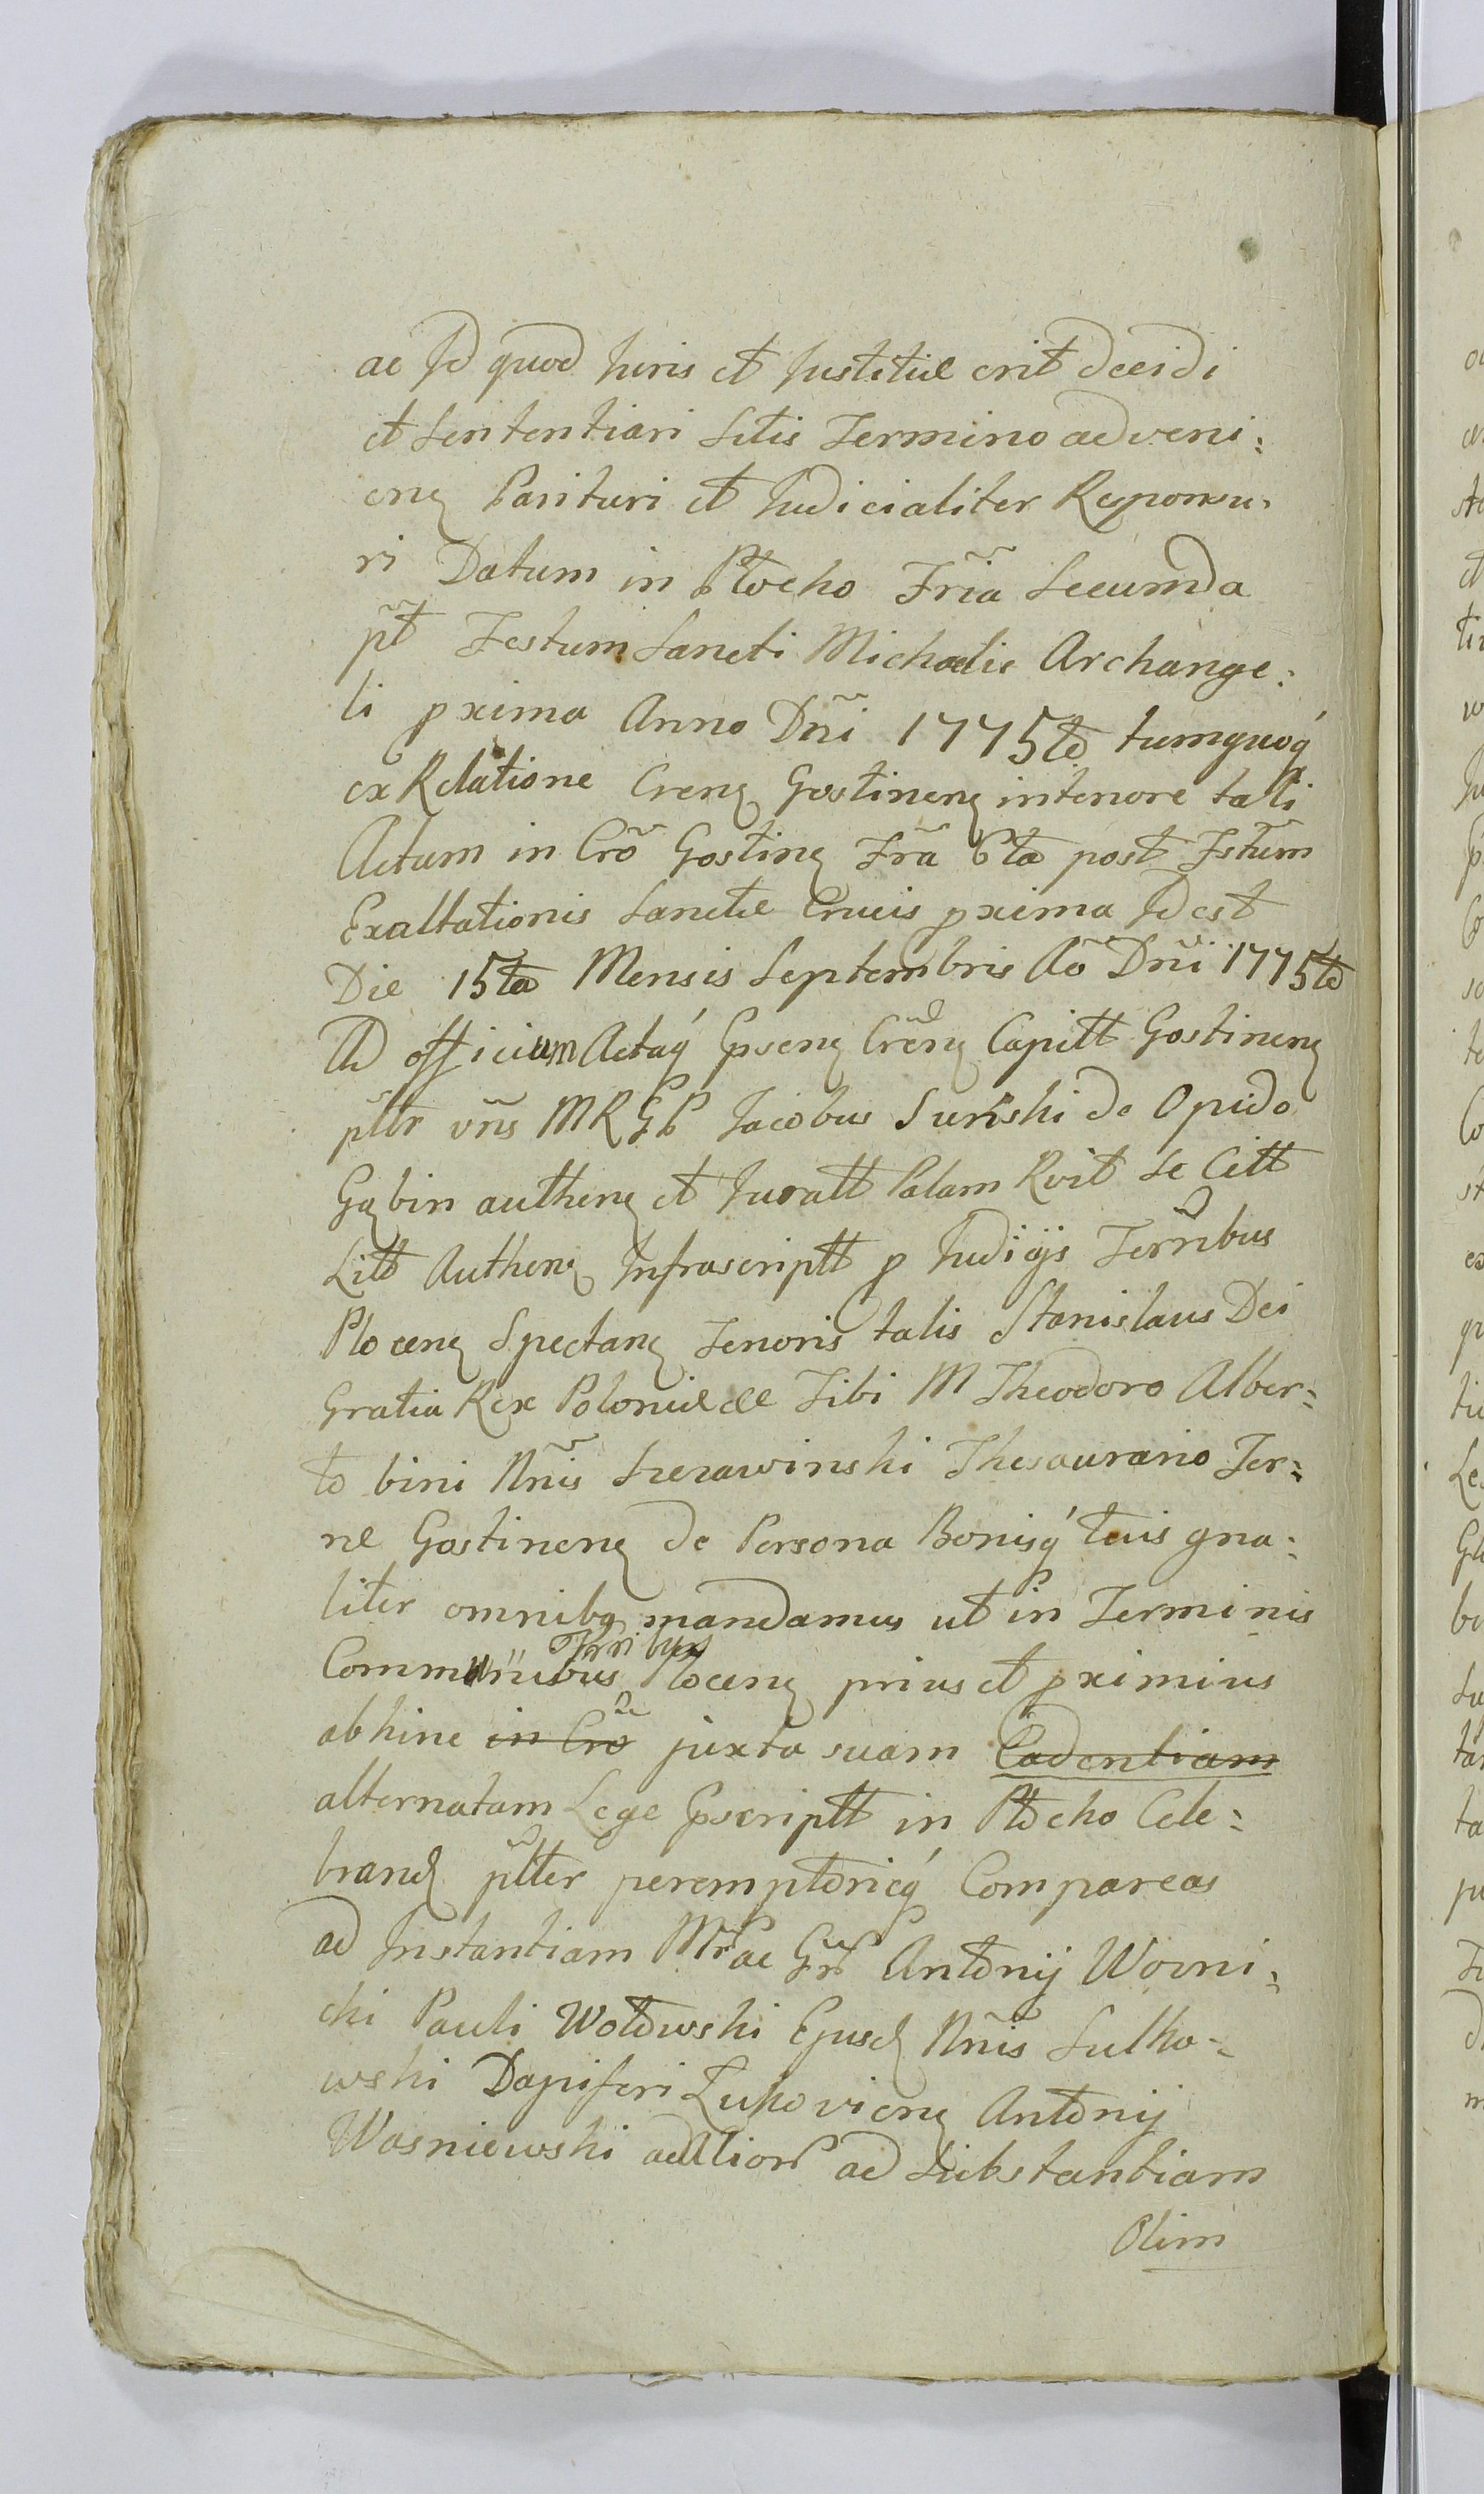 ac Id quod Iuris et Iustitiæ erit decidi
et Sententiari Sitis Termino adveni:
enę Parituri et Iudicialiter Responsu:
ri Datum in Płocko Fr̃ia Secunda
p̃t Festum Sancti Michaelis Archange:
li pxima Anno Dñi 1775to tumquoq́
ex Relatione Crenę Gostinenę intenore tali
Actum in Crõ Gostinę Fr̃a 6ta post Fst̃um
Exaltationis Sanctæ Crucis pxima Id est
Die 15ta Mensis Septembris Aõ Dñi 1775to
Ad officium Actaq́ Gpsenę Cren̄ę Capitt Gostinenę
pltr vñs MRGP Iacobus Surński de Opido
Gąbin authenę et Iuratt Palam Rvit Se Citt
Litt Authenę Infrascriptt p Iudicijs Terr̃ibus
Plocenę Spectanę Tenoris talis Stanislaus Dei
Gratia Rex Poloniæ &c Tibi M Theodoro Alber:
to bini Nñis Szczawinski Thesaurario Ter:
ræ Gostinenę de Persona Bonisq́ tuis gna:
liter omnibq mandamus ut in Terminis
Communibus Trribus Plocenę prius et pximius
abhinc in Crõ juxta suam Cadentiam
alternatam Lege Gpscriptt in Płocko Cele:
brand plter peremptorieq́ Compareas
ad Instantiam Mr ac Gr Antonij Woyni:
cki Pauli Wołowski Ejusd Nñis Sulko:
wski Dapiferi Łukovienę Antonij
Wasniewski actior ad Substantiam
Olim